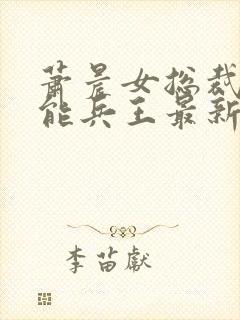 萧晨女总裁
能兵王最新
李苗献